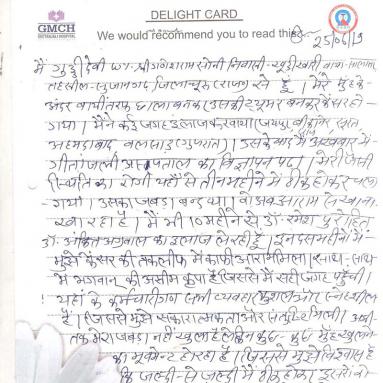 GMCH
DELIGHT CARD
We would recommend you to read this
25/06/19
मैं गुड्डी देवी w/o श्री गणेशराम सोनी निवासी
तहसील-सुजानगढ़, जिला-चूरू (राज॰) से हूँ। मेरे मुंह के
अंदर बायीं तरफ छाला बनकर उसकी ट्यूमर बनकर कैंसर हो
गया। मैंने कई जगह ईलाज करवाया (जयपुर, बीकानेर, सूरत
अहमदाबाद वलसाड़ (गुजरात)। उसके बाद मैं अखबार में
गीतांजली अस्पताल का विज्ञापन पढ़ा। मेरी जैसी
स्थिति का रोगी यहाँ से तीन महीने में ठीक होकर चला
गया। उसका जबड़ा बन्द था। वो अब आराम से खाना
खा रहा है। मैं भी 10 महीने से डॉ. रमेश पुरोहित
डॉ. अंकित अग्रवाल का ईलाज ले रही हूँ। इन दस महीनों में
मुझे कैंसर की तकलीफ में काफी आराम मिला। साथ-साथ
में भगवान की असीम कृपा है जिससे मैं सही जगह पहुँची।
यहाँ के कर्मचारीगण सभी व्यवहार कुशल और स्नेहशील
हैं। जिससे मुझे सकारात्मकता और संतुष्टि मिली। अभी
तक मेरा जबड़ा नहीं खुला है लेकिन कुछ-कुछ मुंह खुलने
का मूवमेन्ट हो रहा है। जिससे मुझे विश्वास है
कि जल्दी से जल्दी मैं ठीक होकर